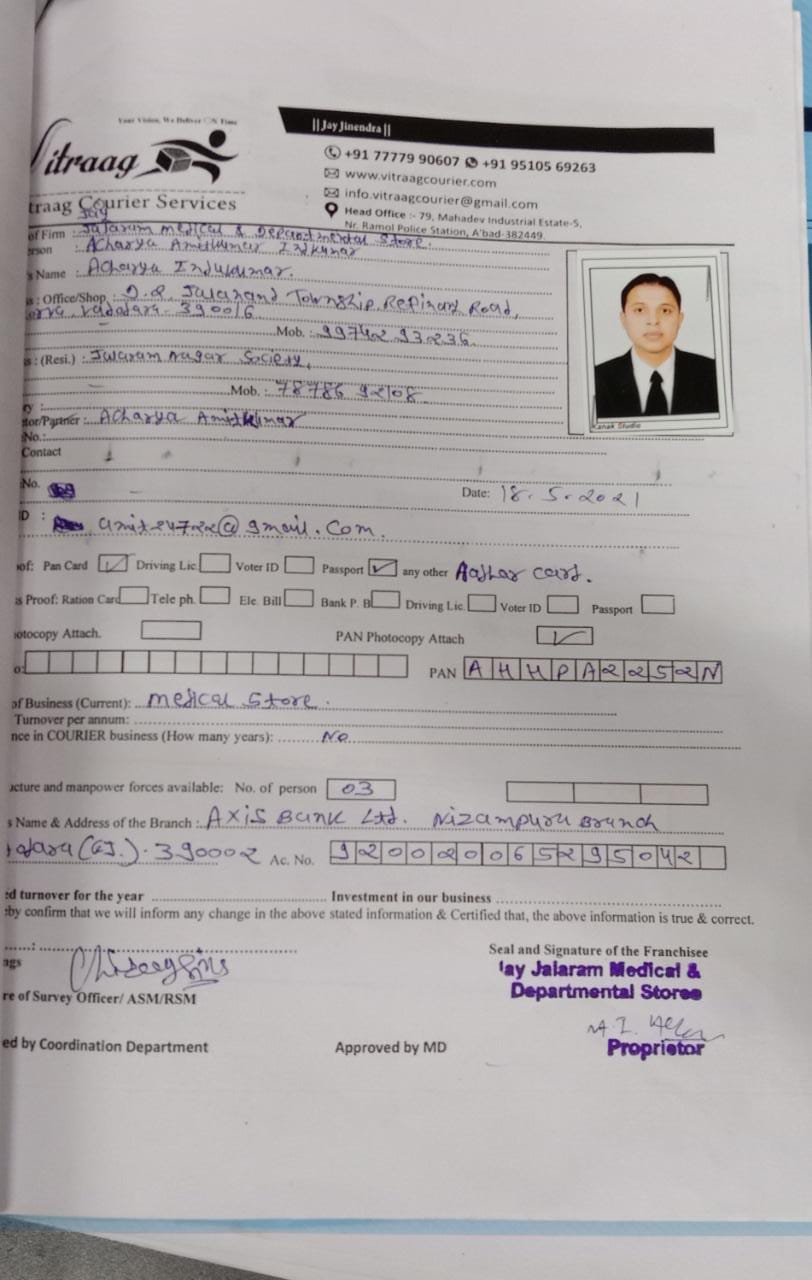 Your Vision, We Deliver ON Time
|| Jay Jinendra ||
Vitraag
+91 77779 90607 +91 95105 69263
www.vitraagcourier.com
info.vitraagcourier@gmail.com
traag Courier Services
Head Office :- 79, Mahadev Industrial Estate-5,
Nr. Ramol Police Station, A'bad-382449.
Jay
of Firm : Jalaram medical & Departmental Store.
erson : Acharya Amitkumar Indkumar
s Name : Acharya Indukumar.
s : Office/Shop Township Refinary Road,
Vadodara - 390016
Mob. : 99742 93236
s : (Resi.) : Jalaram Nagar Society,
Mob. : 78786 92108
ry :
tor/Partner : Acharya Amitkumar
No. :
Contact
No.
Date: 18.5.2021
ID : amit24722@gmail.com.
oof: Pan Card Driving Lic. Voter ID Passport any other Aadhar card.
s Proof: Ration Card Tele ph. Ele. Bill Bank P. B Driving Lic. Voter ID Passport
otocopy Attach. PAN Photocopy Attach
o: PAN AHHPA2252N
of Business (Current): medical Store.
Turnover per annum:
nce in COURIER business (How many years): No
ucture and manpower forces available: No. of person 03
s Name & Address of the Branch : Axis Bank Ltd. Nizampura Branch
dara (GJ.) . 390002 Ac. No. 920020065295042
ed turnover for the year Investment in our business
eby confirm that we will inform any change in the above stated information & Certified that, the above information is true & correct.
Seal and Signature of the Franchisee
ags
Jay Jalaram Medical &
Departmental Stores
re of Survey Officer/ ASM/RSM
Proprietor
ed by Coordination Department Approved by MD
Kanak Studio